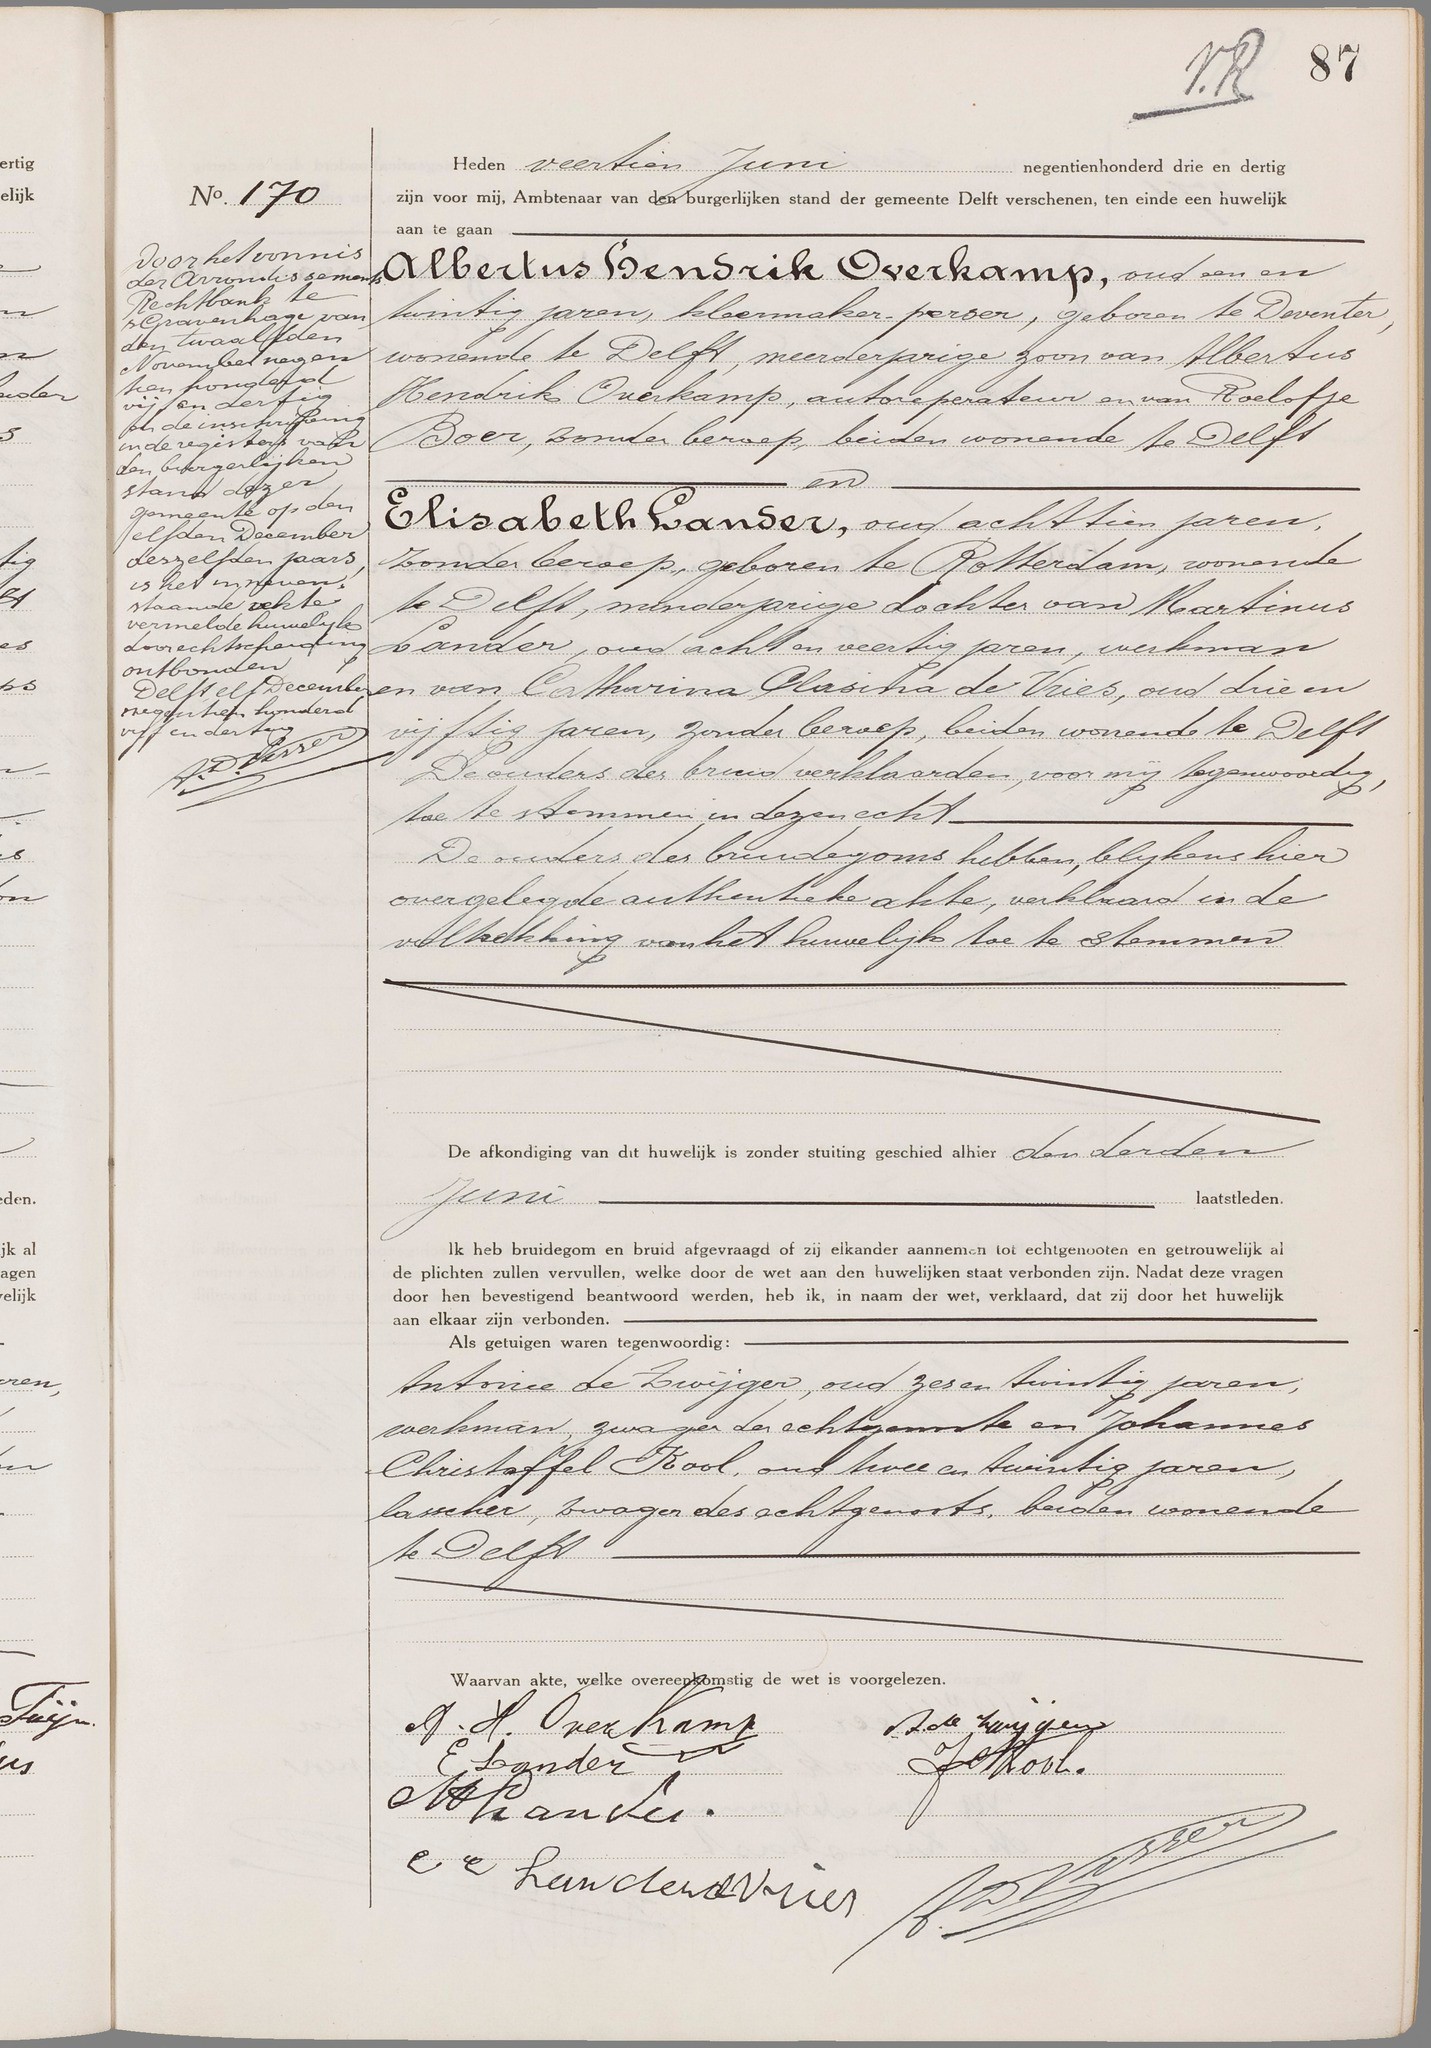 V.R 87
Heden veertien Juni negentienhonderd drie en dertig
No. 170
zijn voor mij, Ambtenaar van den burgerlijken stand der gemeente Delft verschenen, ten einde een huwelijk
aan te gaan
Albertus Hendrik Overkamp, oud een en
twintig jaren, kleermaker-perser, geboren te Deventer,
wonende te Delft, meerderjarige zoon van Albertus
Hendrik Overkamp, autoreperateur en van Roelofje
Boer, zonder beroep, beiden wonende te Delft
en
Elisabeth Lander, oud achttien jaren,
zonder beroep, geboren te Rotterdam, wonende
te Delft, minderjarige dochter van Martinus
Lander, oud acht en veertig jaren, werkman
en van Catharina Clasina de Vries, oud drie en
vijftig jaren, zonder beroep, beiden wonende te Delft
De ouders der bruid verklaarden, voor mij tegenwoordig,
toe te stemmen in dezen echt
De ouders des bruidegoms hebben, blijkens hier
overgelegde authentieke akte, verklaard in de
voltrekking van het huwelijk toe te stemmen
Door het vonnis
der Arrondissements
Rechtbank te
's Gravenhage van
den twaalfden
November negen
tien honderd
vijf en dertig
en de inschrijving
in de registers van
den burgerlijken
stand dezer
gemeente op den
elfden December
deszelfden jaars,
is het in neven-
staande akte
vermelde huwelijk
door echtscheiding
ontbonden
Delft elf December
negentien honderd
vijf en dertig
De afkondiging van dit huwelijk is zonder stuiting geschied alhier den derden
Juni laatstleden.
Ik heb bruidegom en bruid afgevraagd of zij elkander aannemen tot echtgenooten en getrouwelijk al
de plichten zullen vervullen, welke door de wet aan den huwelijken staat verbonden zijn. Nadat deze vragen
door hen bevestigend beantwoord werden, heb ik, in naam der wet, verklaard, dat zij door het huwelijk
aan elkaar zijn verbonden.
Als getuigen waren tegenwoordig:
Antonie de Zwijger, oud zes en twintig jaren,
werkman, zwager der echtgenoote en Johannes
Christoffel Kool, oud twee en twintig jaren,
lasscher, zwager des echtgenoots, beiden wonende
te Delft
Waarvan akte, welke overeenkomstig de wet is voorgelezen.
A. H. Overkamp A de Zwijger
E Lander J C Kool.
M Lander.
C C Lander de Vries